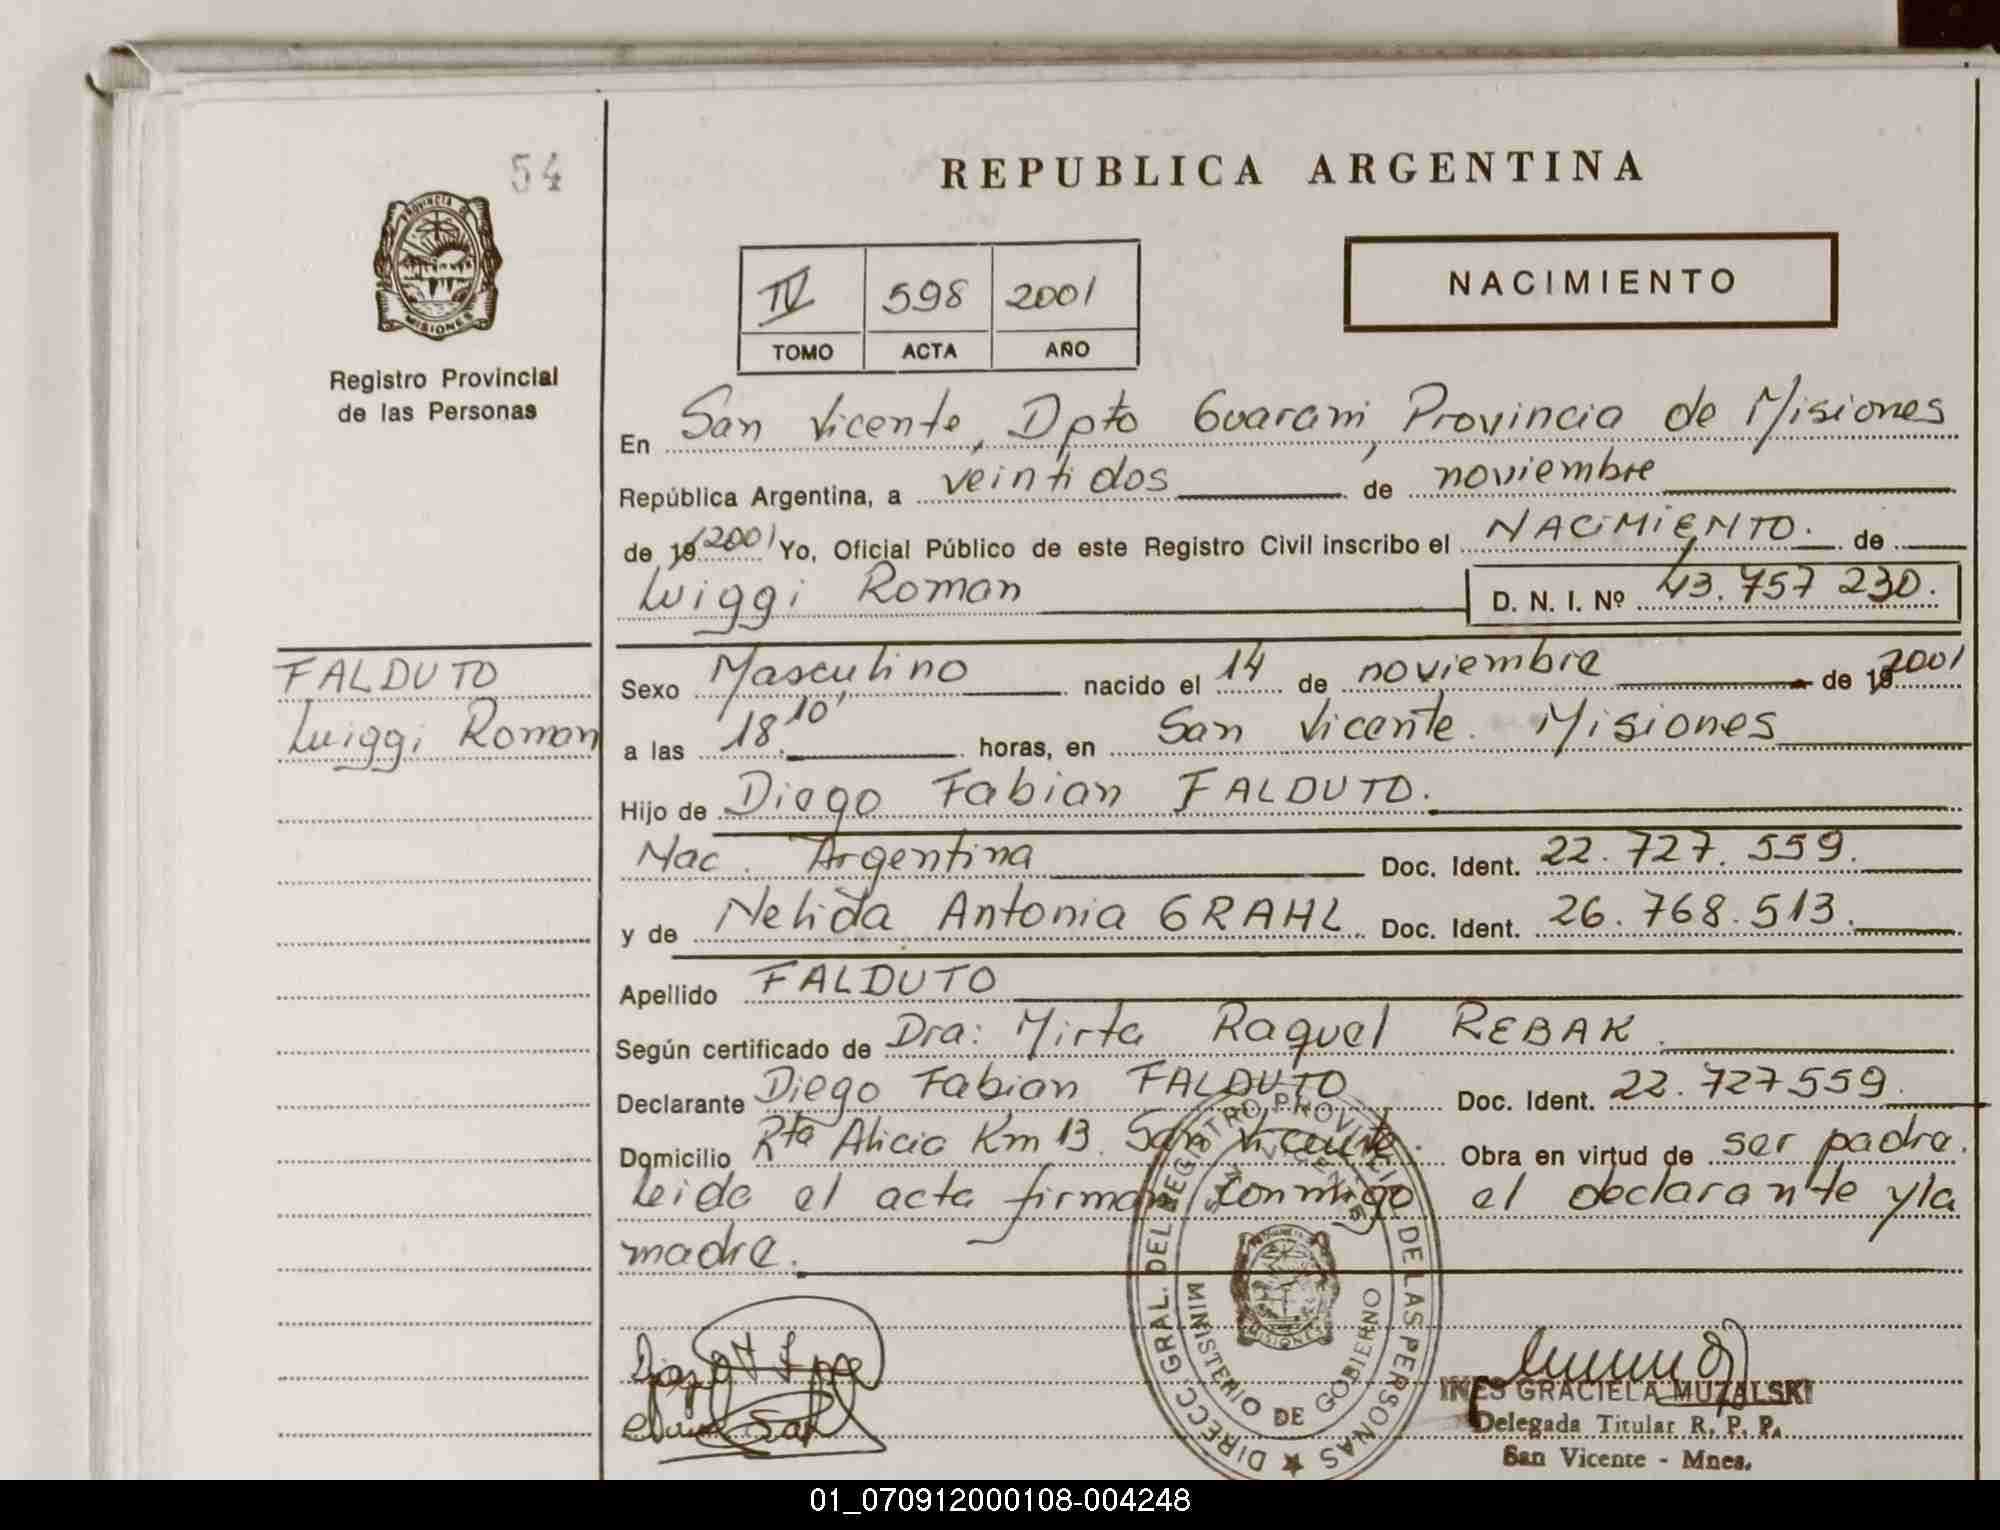 54
PROVINCIA DE
MISIONES
Registro Provincial
de las Personas
REPUBLICA ARGENTINA
IV 598 2001
TOMO ACTA AÑO
NACIMIENTO
En San Vicente, Dpto Guarani, Provincia de Misiones
República Argentina, a veintidos de noviembre
de 19 2001 Yo, Oficial Público de este Registro Civil inscribo el NACIMIENTO. de
Luiggi Roman D. N. I. Nº 43.757 230.
FALDUTO
Luiggi Roman
Sexo Masculino nacido el 14 de noviembre de 19 2001
a las 18.10' horas, en San Vicente. Misiones
Hijo de Diego Fabian FALDUTO.
Nac. Argentina Doc. Ident. 22.727.559.
y de Nelida Antonia GRAHL Doc. Ident. 26.768.513.
Apellido FALDUTO
Según certificado de Dra: Mirta Raquel REBAK.
Declarante Diego Fabian FALDUTO Doc. Ident. 22.727559.
Domicilio Rta Alicia Km 13. San Vicente. Obra en virtud de ser padre.
Leida el acta firman conmigo el declarante y la
madre.
DIRECC. GRAL. DEL REGISTRO PROVINCIAL DE LAS PERSONAS
SAN VICENTE
MINISTERIO DE GOBIERNO
MISIONES
INES GRACIELA MUZALSKI
Delegada Titular R. P. P.
San Vicente - Mnes.
01_070912000108-004248